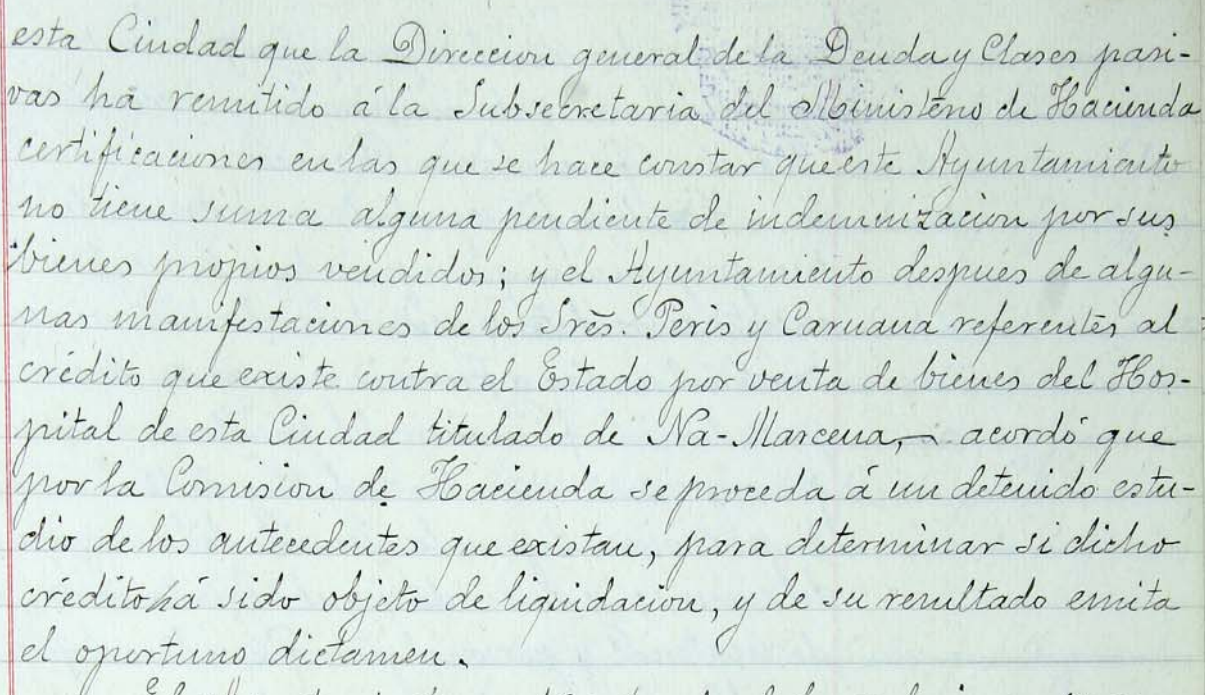 esta Ciudad que la Direccion general de la Deuda y Clases pasi-
vas há remitido á la Subsecretaria del Ministerio de Hacienda
certificaciones en las que se hace constar que este Ayuntamiento
no tiene suma alguna pendiente de indemnizacion por sus
bienes propios vendidos; y el Ayuntamiento despues de algu-
nas manifestaciones de los Srēs. Peris y Caruana referentes al
crédito que existe contra el Estado por venta de bienes del Hos-
pital de esta Ciudad titulado de Na-Marcena, acordó que
por la Comision de Hacienda se proceda á un detenido estu-
dio de los antecedentes que existan, para determinar si dicho
crédito há sido objeto de liquidacion, y de su resultado emita
el oportuno dictamen.